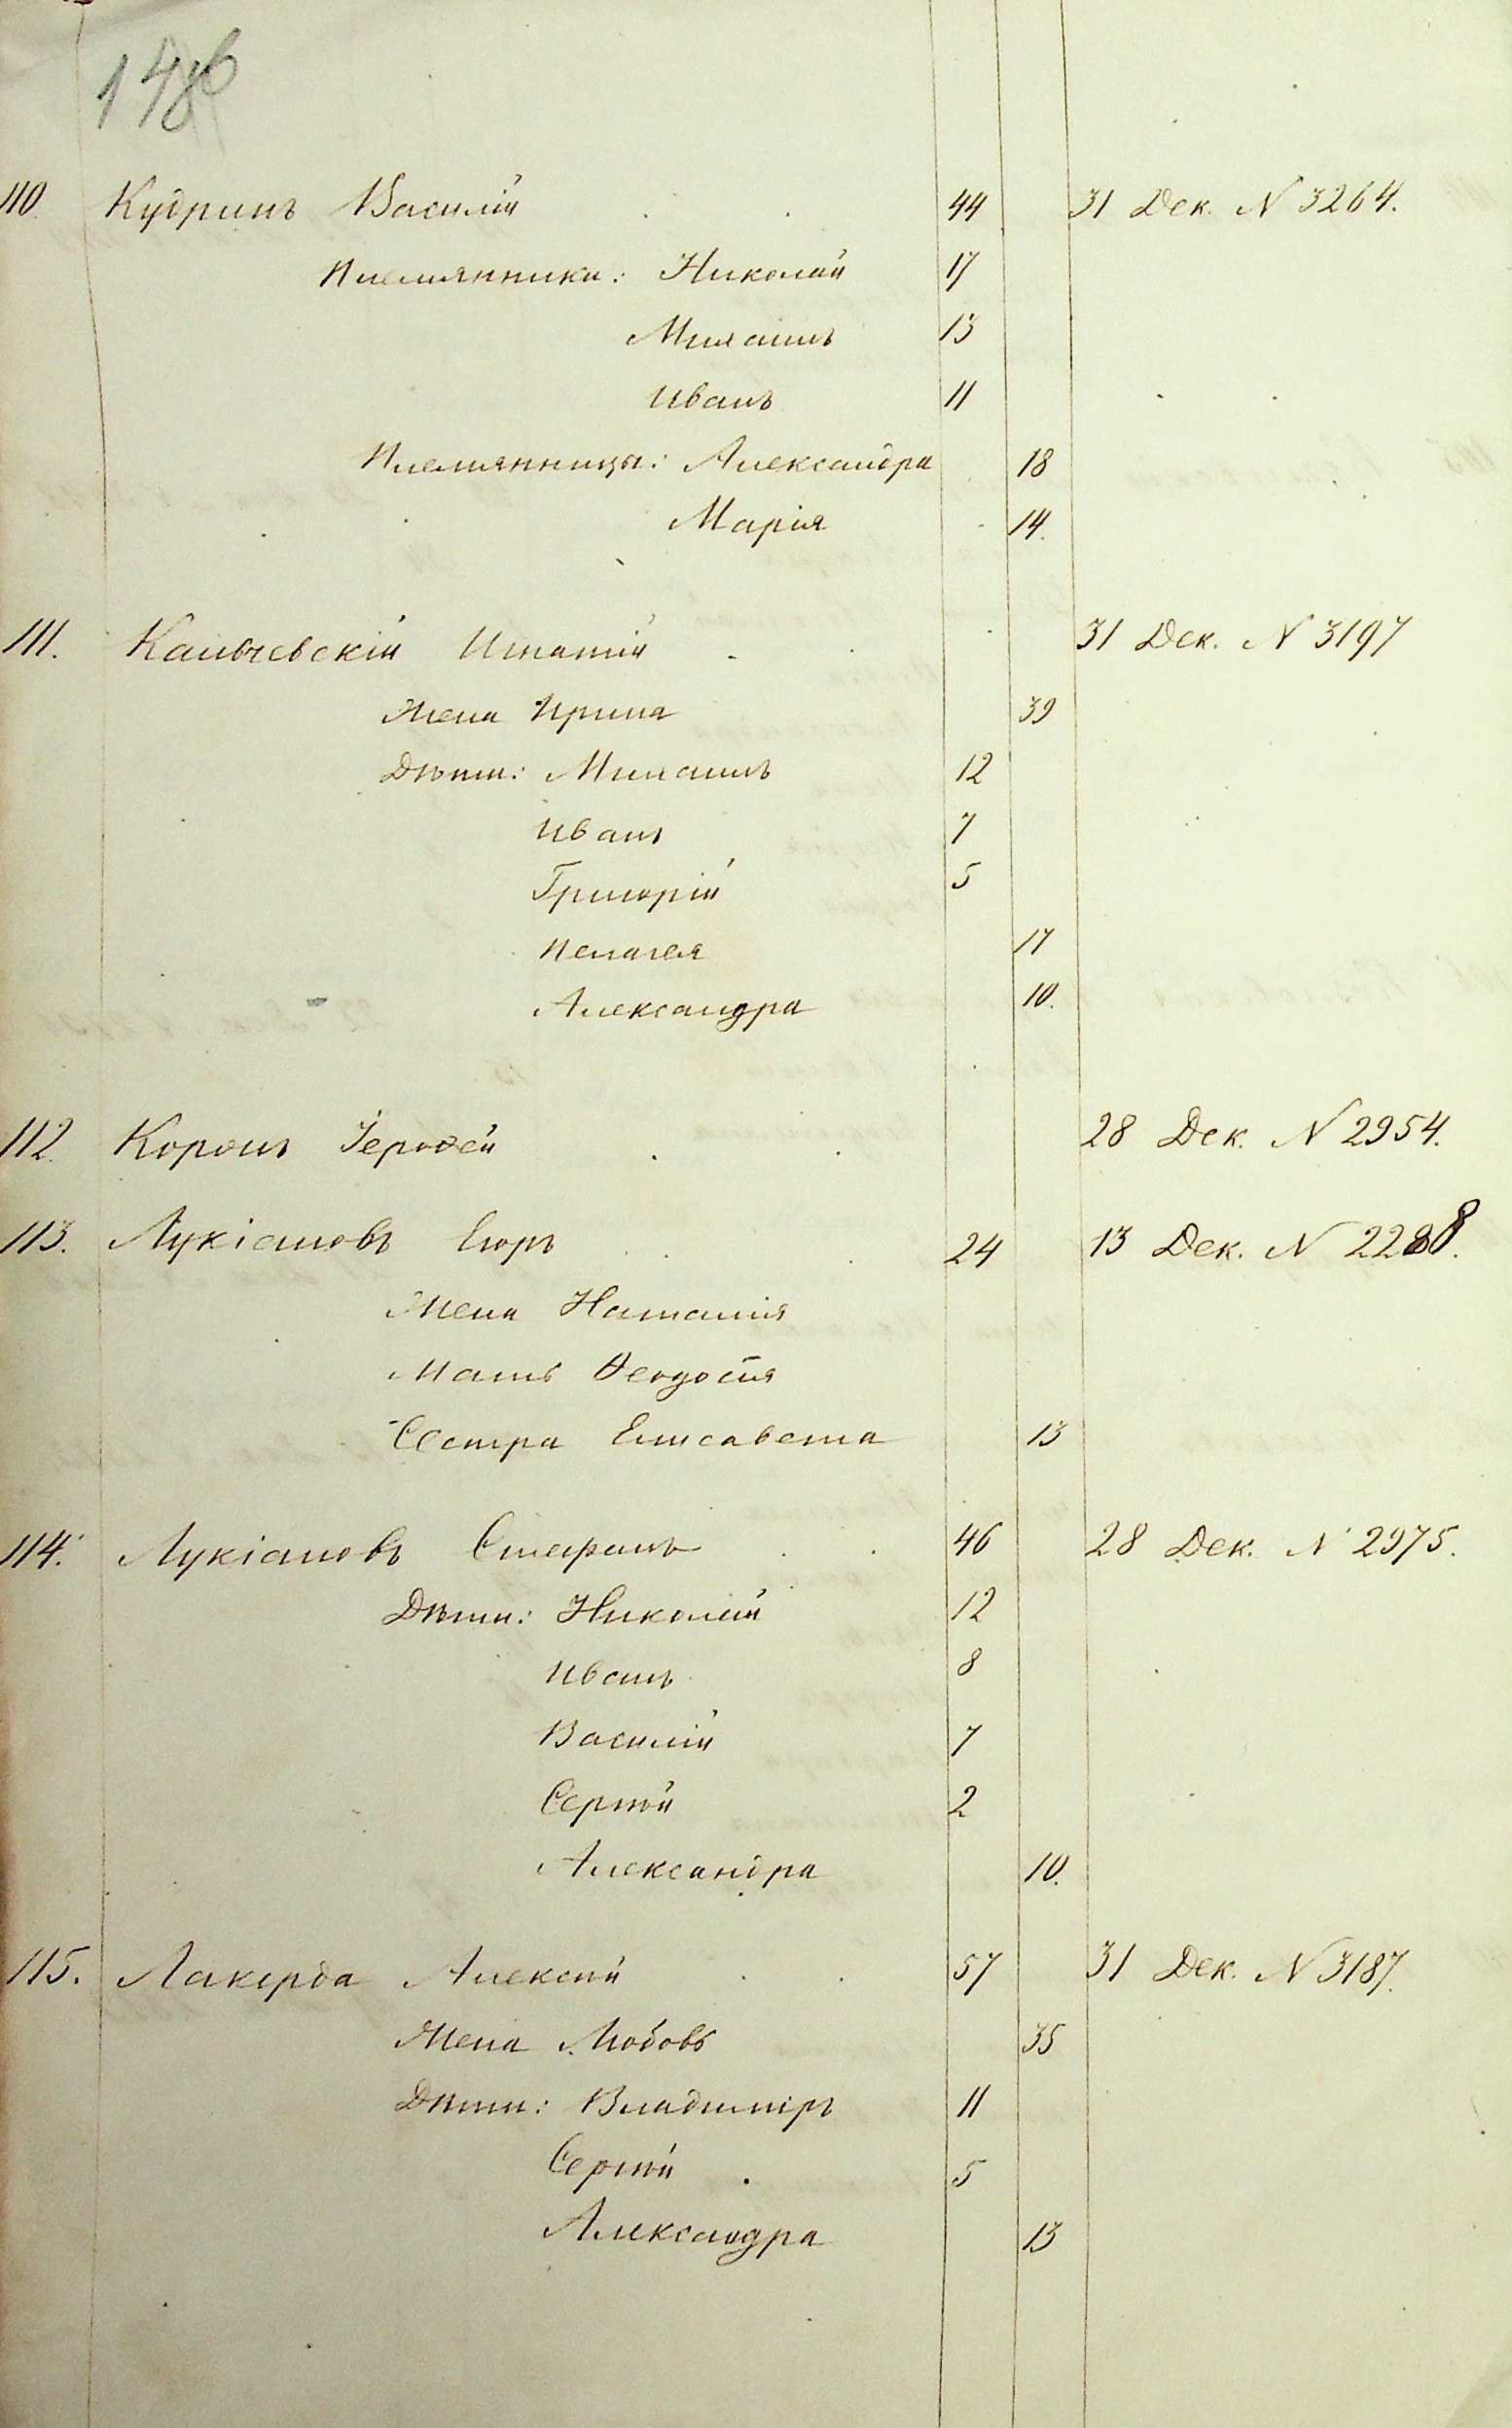 110. Кудринъ Василій 44 31 Дек. N 3264.
Племянники: Николай 17
Михаилъ 13
Иванъ 11
Племянницы: Александра 18
Марія 14.
111. Игнатій 31 Дек. N 3197
Жена Ирина 39
Дѣти: Михаилъ 12
Иванъ 7
Григорій 5
Пелагея 17
Александра 10.
112. Іерофей 28 Дек. N 2954.
113. Лукіановъ Егоръ 24 13 Дек. N 2288.
Жена Наталія
Мать Ѳеодосія
Сестра Елисавета 13
114. Лукіановъ Стефанъ 46 28 Дек. N 2975.
Дѣти: Николай 12
Иванъ 8
Василій 7
Сергѣй 2
Александра 10.
115. Лакерда Алексѣй 57 31 Дек. N 3187.
Жена Любовь 35
Дѣти: Владиміръ 11
Сергѣй 5
Александра 13